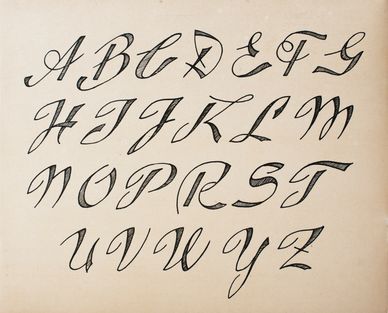 A B C D E F G
H I J K L M
N O P R S T
U V W Y Z